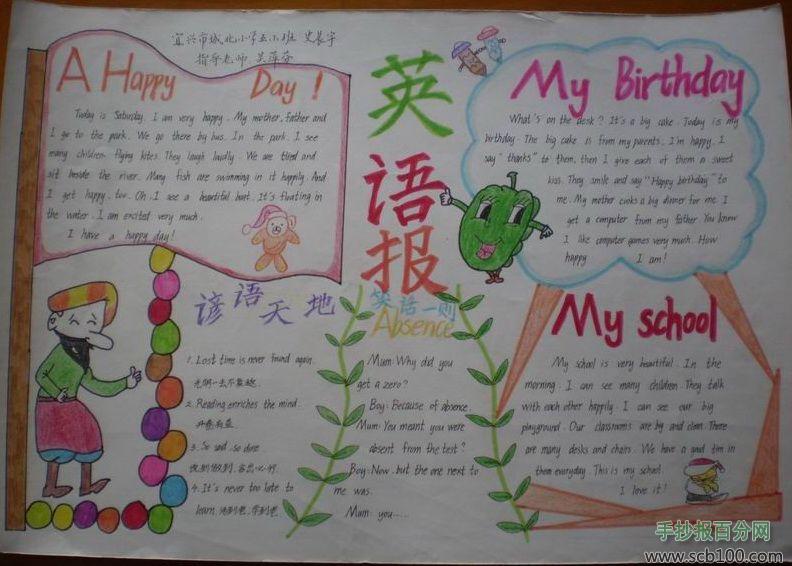 宜兴市城北小学五小班 史长宇
指导老师 吴萍芬
A Happy Day!
Today is Saturday. I am very happy. My mother, father and
I go to the park. We go there by bus. In the park. I see
many children flying kites. They laugh laudly. We are tired and
sit beside the river. Many fish are swimming in it happily. And
I get happy, too. Oh, I see a beautiful boat. It's floating in
the water. I am excited very much.
I have a happy day!
英
语
报
My Birthday
What's on the desk? It's a big cake. Today is my
birthday. The big cake is from my parents. I'm happy. I
say "thanks" to them, then I give each of them a sweet
kiss. They smile and say "Happy birthday" to
me. My mother cooks a big dinner for me. I
get a computer from my father. You know
I like computer games very much. How
happy I am!
谚语天地
1. Lost time is never found again.
光阴一去不复返.
2. Reading enriches the mind.
开卷有益.
3. So said, so done.
说到做到,言出必行.
4. It's never too late to
learn. 活到老,学到老
笑话一则
Absence
Mum: Why did you
get a zero?
Boy: Because of absence.
Mum: You meant you were
absent from the test?
Boy: Now, but the one next to
me was.
Mum: you......
My school
My school is very beautiful. In the
morning. I can see many children. They talk
with each other happily. I can see our big
playground. Our classrooms are big and clean. There
are many desks and chairs. We have a good tim in
them everyday. This is my school.
I love it!
手抄报百分网
www.scb100.com